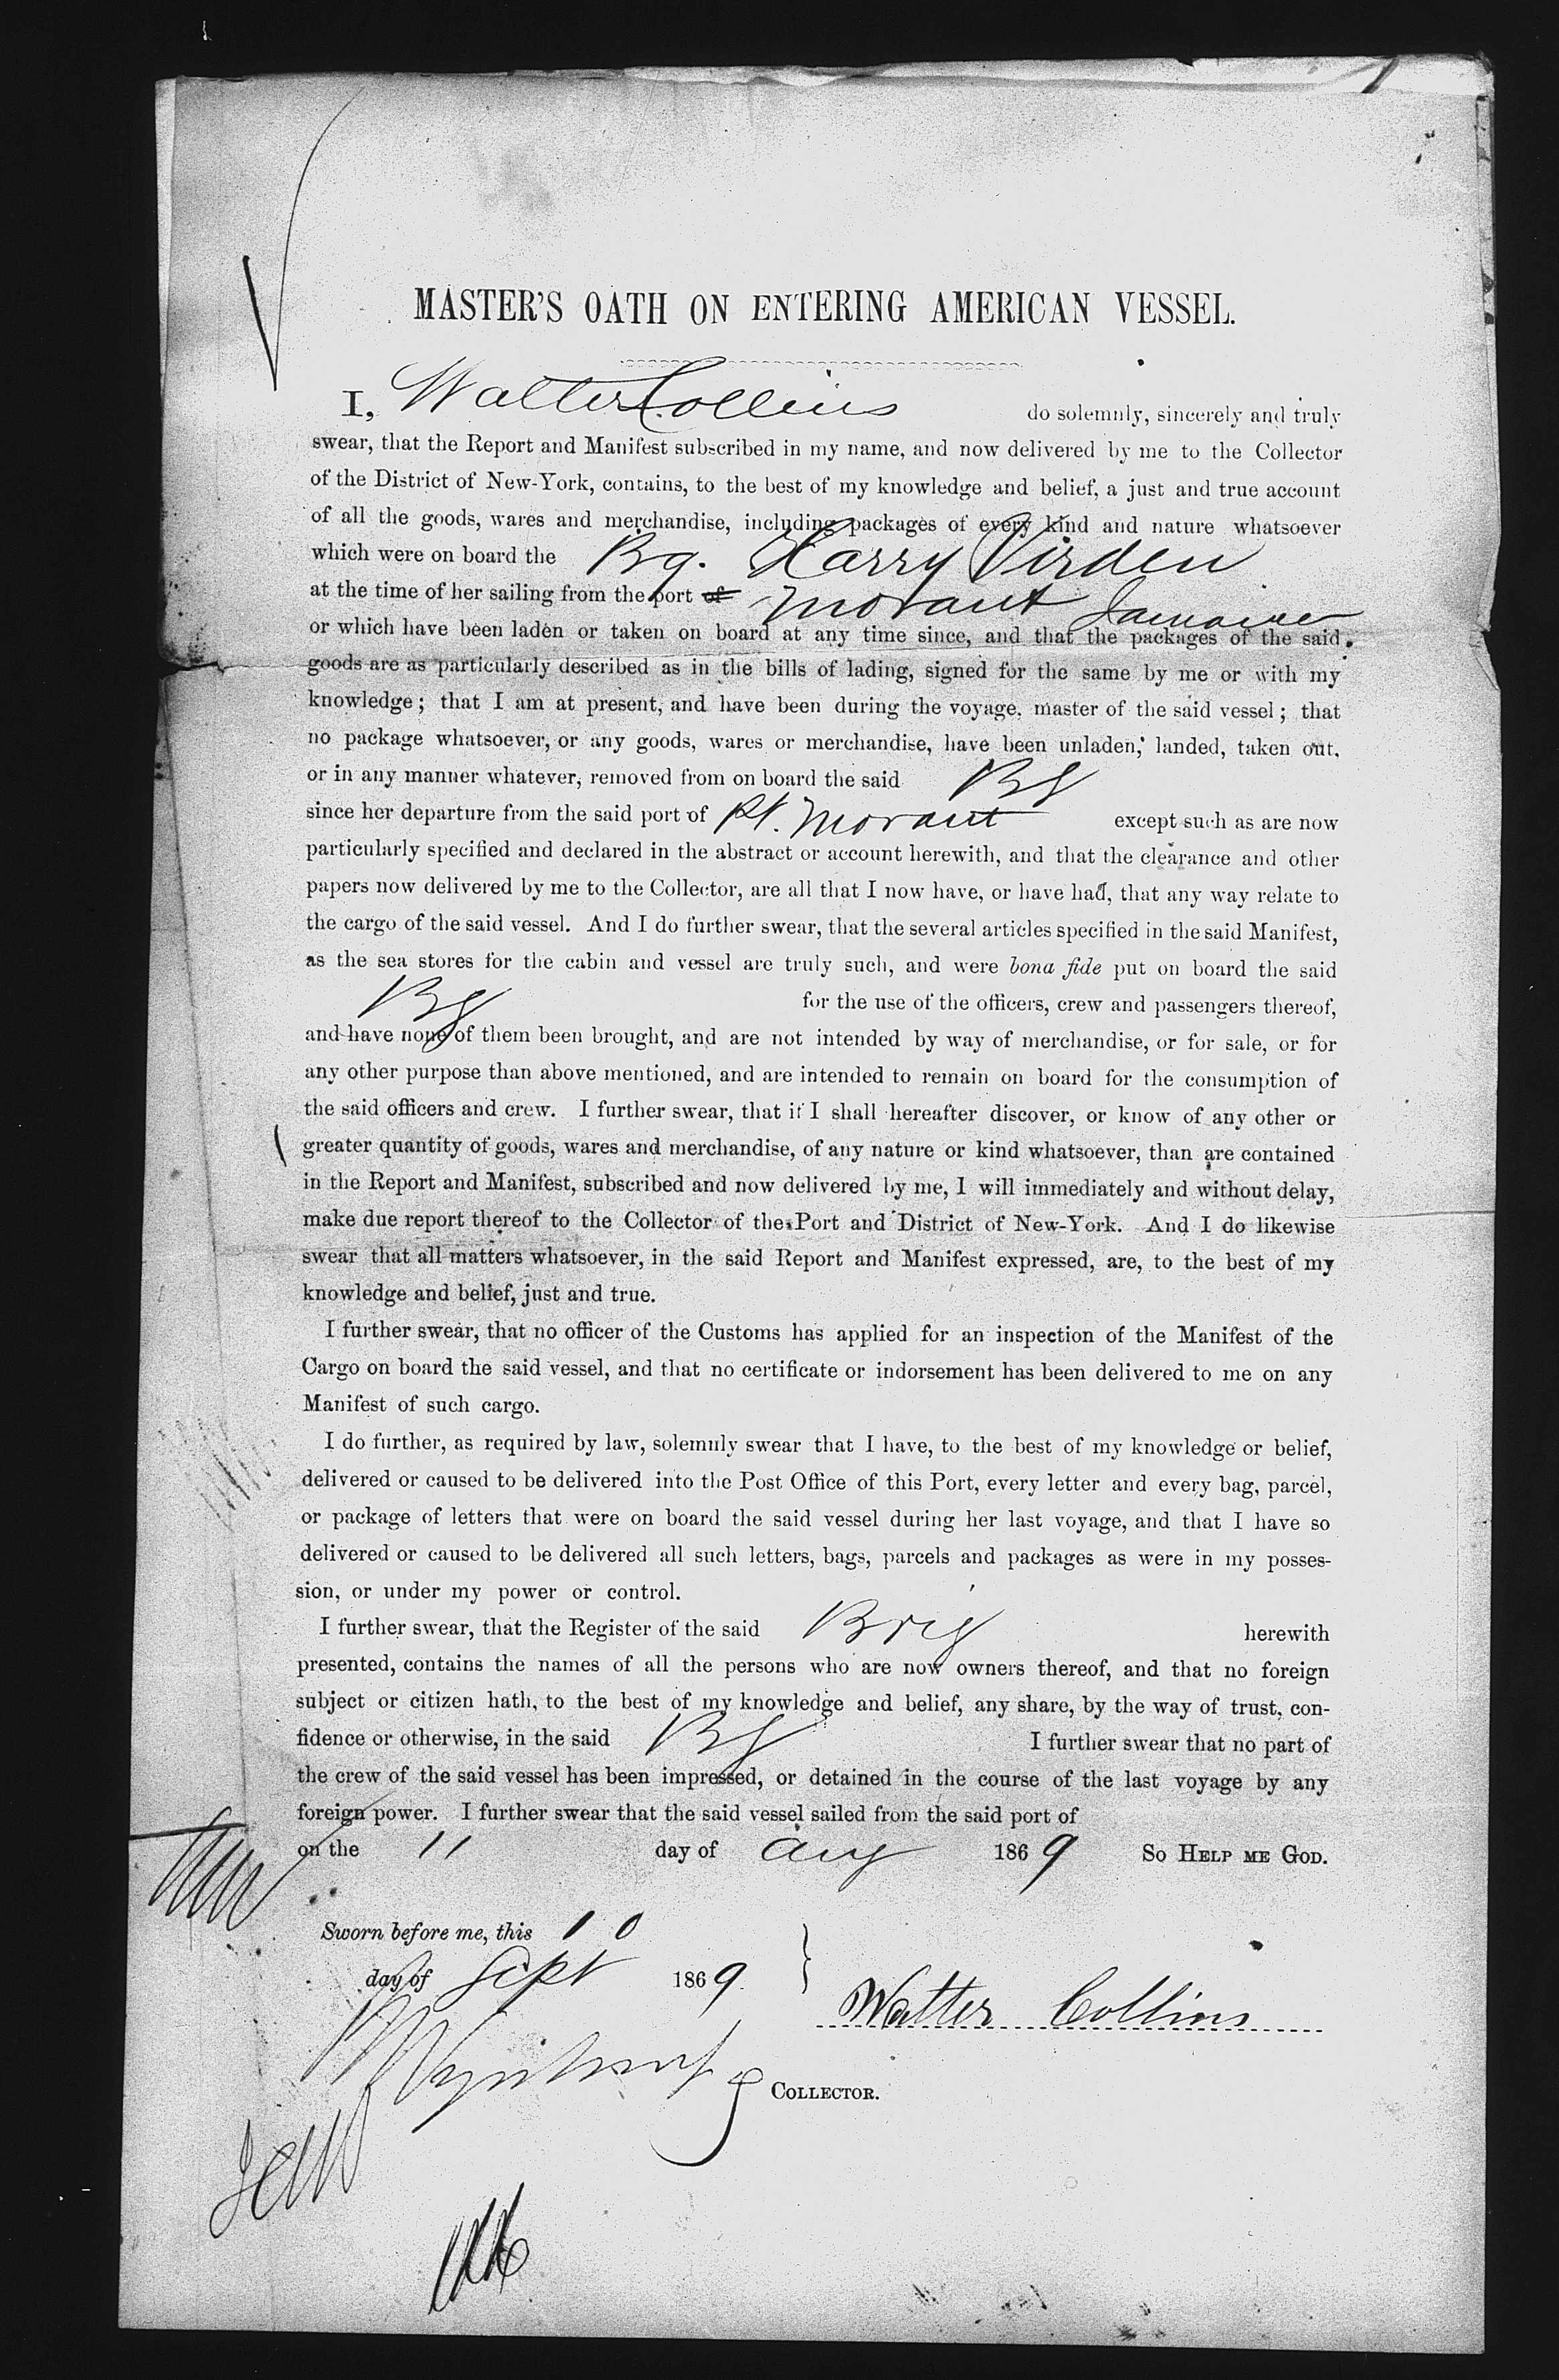 MASTER'S OATH ON ENTERING AMERICAN VESSEL.
I, Walter Collins do solemnly, sincerely and truly
swear, that the Report and Manifest subscribed in my name, and now delivered by me to the Collector
of the District of New-York, contains, to the best of my knowledge and belief, a just and true account
of all the goods, wares and merchandise, including packages of every kind and nature whatsoever
which were on board the Bg. Harry Virden
at the time of her sailing from the port of Morant Jamaica
or which have been laden or taken on board at any time since, and that the packages of the said
goods are as particularly described as in the bills of lading, signed for the same by me or with my
knowledge; that I am at present, and have been during the voyage, master of the said vessel; that
no package whatsoever, or any goods, wares or merchandise, have been unladen, landed, taken out,
or in any manner whatever, removed from on board the said Bg
since her departure from the said port of Pt. Morant except such as are now
particularly specified and declared in the abstract or account herewith, and that the clearance and other
papers now delivered by me to the Collector, are all that I now have, or have had, that any way relate to
the cargo of the said vessel. And I do further swear, that the several articles specified in the said Manifest,
as the sea stores for the cabin and vessel are truly such, and were bona fide put on board the said
Bg for the use of the officers, crew and passengers thereof,
and have none of them been brought, and are not intended by way of merchandise, or for sale, or for
any other purpose than above mentioned, and are intended to remain on board for the consumption of
the said officers and crew. I further swear, that if I shall hereafter discover, or know of any other or
greater quantity of goods, wares and merchandise, of any nature or kind whatsoever, than are contained
in the Report and Manifest, subscribed and now delivered by me, I will immediately and without delay,
make due report thereof to the Collector of the Port and District of New-York. And I do likewise
swear that all matters whatsoever, in the said Report and Manifest expressed, are, to the best of my
knowledge and belief, just and true.
I further swear, that no officer of the Customs has applied for an inspection of the Manifest of the
Cargo on board the said vessel, and that no certificate or indorsement has been delivered to me on any
Manifest of such cargo.
I do further, as required by law, solemnly swear that I have, to the best of my knowledge or belief,
delivered or caused to be delivered into the Post Office of this Port, every letter and every bag, parcel,
or package of letters that were on board the said vessel during her last voyage, and that I have so
delivered or caused to be delivered all such letters, bags, parcels and packages as were in my posses-
sion, or under my power or control.
I further swear, that the Register of the said Brig herewith
presented, contains the names of all the persons who are now owners thereof, and that no foreign
subject or citizen hath, to the best of my knowledge and belief, any share, by the way of trust, con-
fidence or otherwise, in the said Bg I further swear that no part of
the crew of the said vessel has been impressed, or detained in the course of the last voyage by any
foreign power. I further swear that the said vessel sailed from the said port of
on the 11 day of Aug 1869 So HELP ME GOD.
Sworn before me, this 10
day of Sept 1869.
Walter Collins
COLLECTOR.